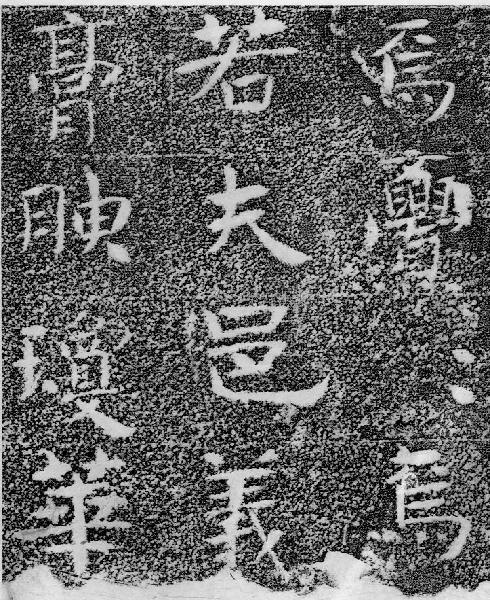 焉亹〻焉
若夫邑義
膏腴瓊華